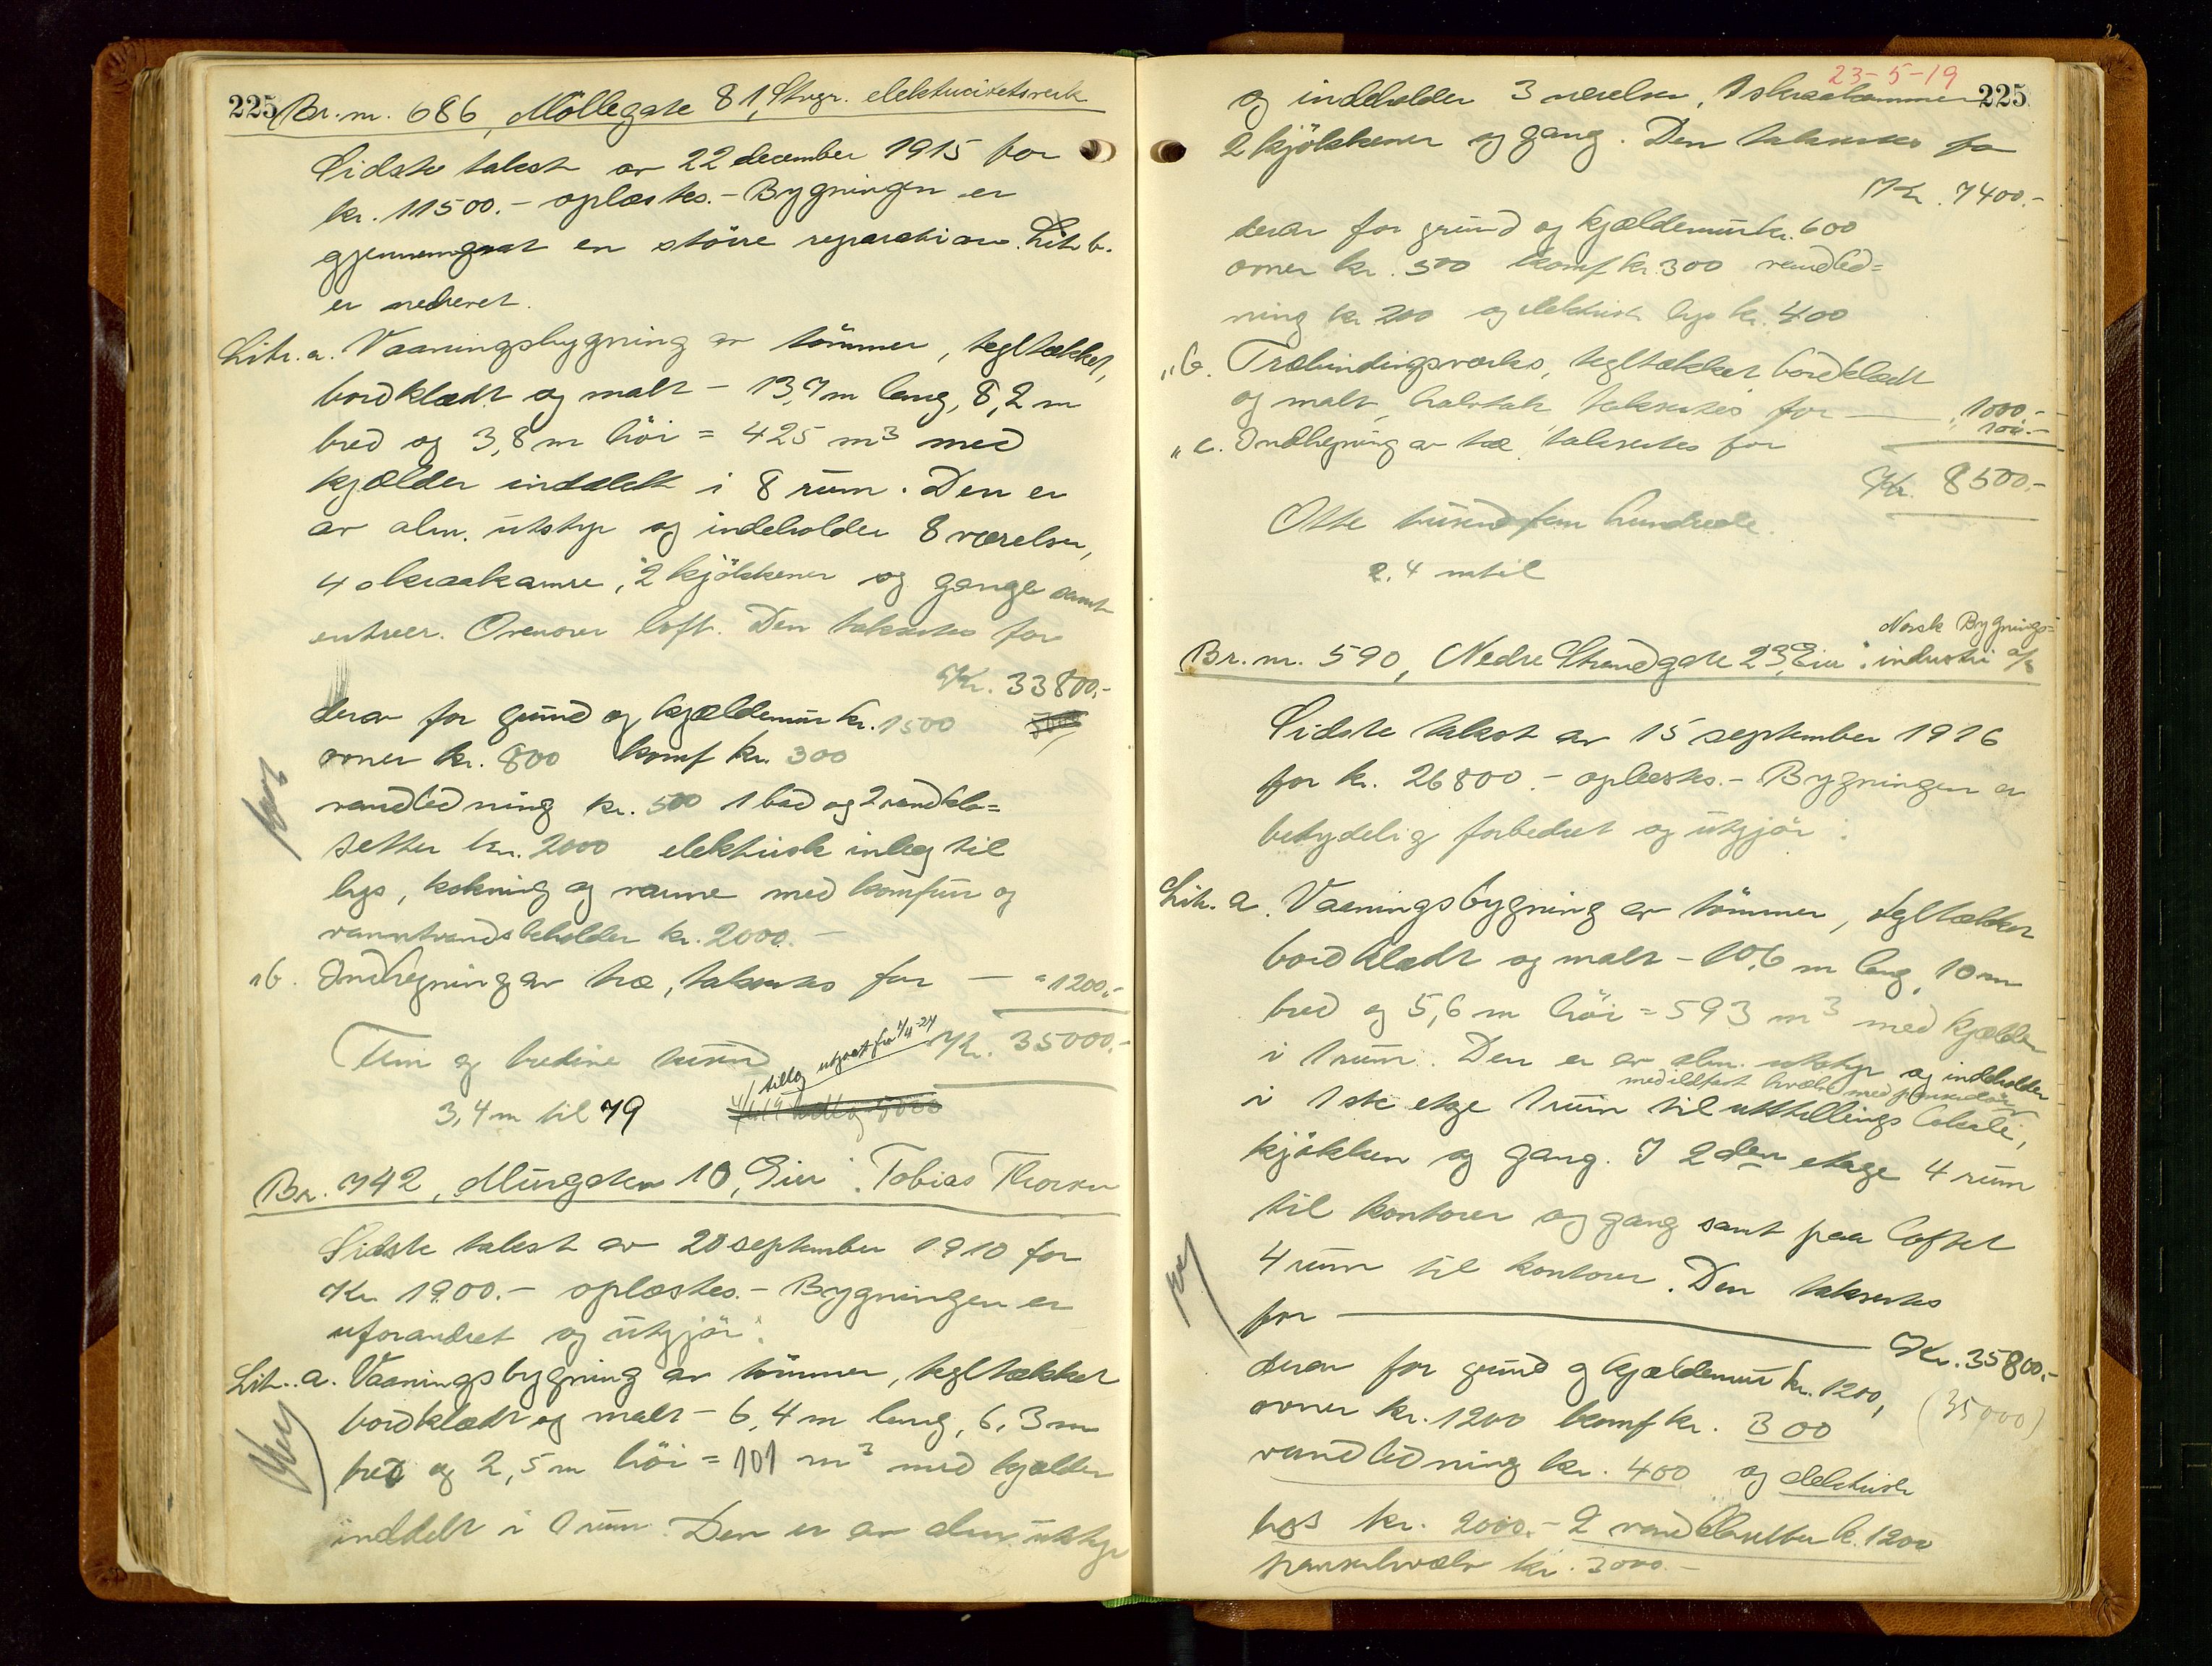 225 Br. nr. 686, Möllegate 81, Stvgr. elektricitetsverk
Sidste takst av 22 december 1915 for
kr. 11500.- oplæstes.- Bygningen er
gjennemgaat en större reparation. Litr b.
er nedrevet.
Litr. a. Vaaningsbygning av tömmer, tegltækket,
bordklædt og malt - 13,7 m lang, 8,2 m
bred og 3,8 m höi = 425 m³ med
kjælder inddelt i 8 rum. Den er
av alm. utstyr og indeholder 8 værelser,
4 skraakamre, 2 kjökkener og gange samt
entreer. Ovenover loft. Den takseres for
Kr. 33800.-
derav for grund og kjældermur kr. 1500
ovner kr. 800 komf kr. 300
vandledning kr. 500 1 bad og 2 vandklo=
setter kr. 2000 elektrisk inlæg til
lys, kokning og varme med komfur og
varmtvandsbeholder kr. 2000.-
" b. Indhegning av træ, takseres for - " 1200.-
Kr. 35000.-
Fem og tredive tusind
tillæg utgaat fra 4/4-24
3,4 m til 79
Br. 742, Murgaten 10, Eier: Tobias Thorsen
Sidste takst av 20 september 1910 for
Kr 1900.- oplæstes.- Bygningen er
uforandret og utgjör:
Litr. a. Vaaningsbygning av tömmer, tegltækket
bordklædt og malt - 6,4 m lang, 6,3 m
bred og 2,5 m höi = 101 m³ med kjælder
inddelt i 1 rum. Den er av alm. utstyr
23-5-19
225
og indeholder 3 værelser, 1 skraakammer
2 kjökkener og gang. Den takseres for
Kr. 7400.-
derav for grund og kjældermur kr. 600
ovner kr. 500 komf kr. 300 vandled=
ning kr. 200 og elektrisk lys kr. 400
" b. Træbindingsverks, tegltækket bordklædt
og malt, halvtak takseres for - " 1000.-
" c. Indhegning av træ, takseres for " 100.-
Kr. 8500.-
Otte tusind fem hundrede.
2.4 m til
Norsk Bygnings=
Br. nr. 590, Nedre Strandgate 23, Eier: industri a/s
Sidste takst av 15 september 1916
for kr. 26800.- oplæstes.- Bygningen er
betydelig forbedret og utgjör:
Litr. a. Vaaningsbygning av tömmer, tegltækket
bordklædt og malt - 10,6 m lang, 10 m
bred og 5,6 m höi = 593 m³ med kjælder
i 1 rum. Den er av alm. utstyr og indeholder
med ildfast hvælv med panserdör
i 1ste etge 1 rum til utstillings lokale,
kjökken og gang. I 2den etage 4 rum
til kontorer og gang samt paa loftet
4 rum til kontorer. Den takseres
for - Kr. 35800.-
derav for grund og kjældermur kr. 1200,
(35000)
ovner kr. 1200 komf kr. 300
vandledning kr. 400 og elektrisk
lys kr. 2000.- 2 vandklosetter kr. 1200
panserhvælv kr. 3000.-